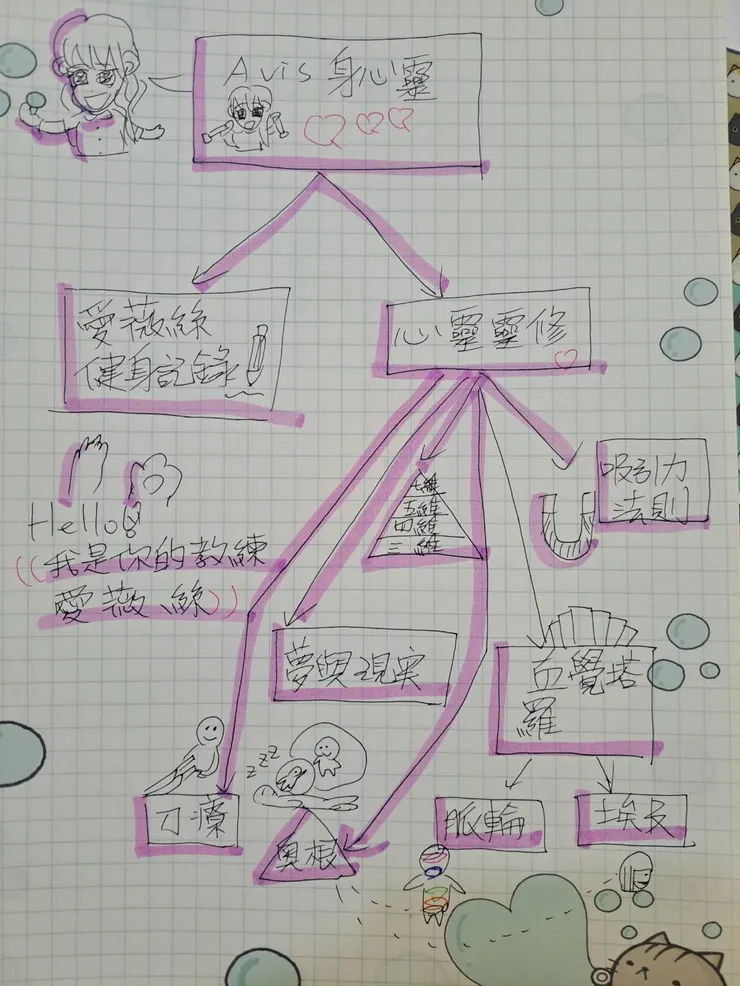 Avis身心靈
愛薇絲
健身記錄
心靈靈修
Hello!
((我是你的教練
愛薇絲))
七維
五維
四維
三維
吸引力
法則
夢與現実
直覺塔
羅
刀療
zzz
奧根
脈輪
埃及